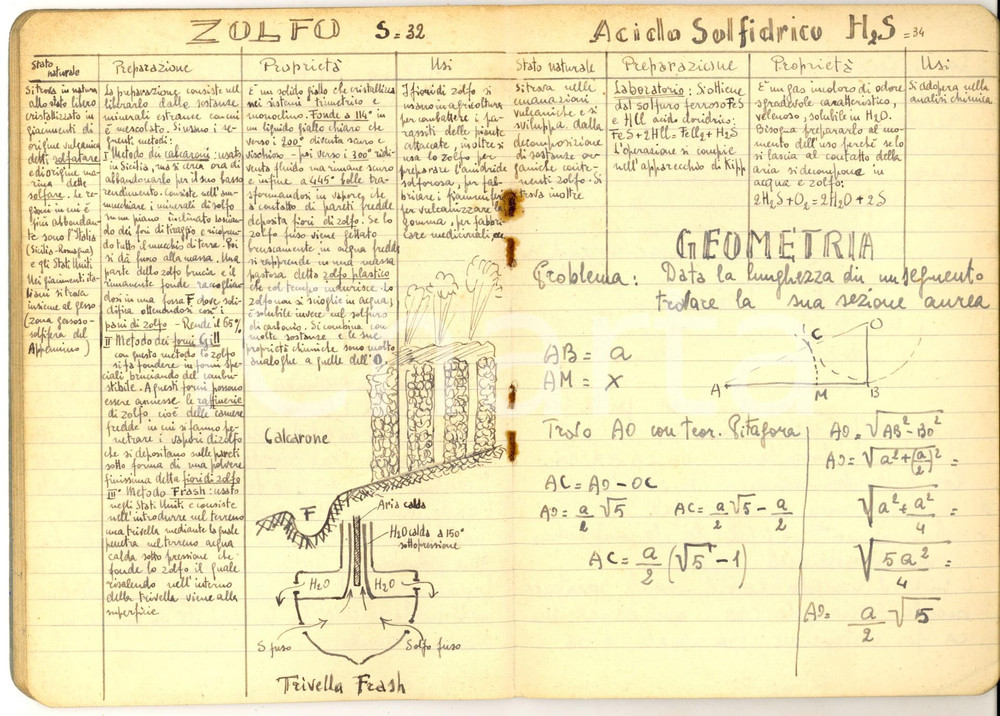 ZOLFO S=32
Stato
naturale
Si trova in natura
allo stato libero
cristallizzato in
giacimenti di
origine vulcanica
detti solfatare
ed origine ma-
rina dette
solfare. Le re-
gioni in cui è
più abbondan-
te sono l'Italia
(Sicilia-Romagna)
e gli Stati Uniti
Nei giacimenti ita-
liani si trova
insieme al gesso
(zona gessoso-
solfifera del
Appennino)
Preparazione
La preparazione consiste nel
liberarlo dalle sostanze
minerali estranee con cui
è mescolato. Si usano i se-
guenti metodi:
I Metodo dei calcaroni: usato
in Sicilia, ma si cerca ora di
abbandonarlo per il suo basso
rendimento. Consiste nell'am-
mucchiare i minerali di solfo
su un piano inclinato lascian-
do dei fori di tiraggio e ricopren-
do tutto il mucchio di terra. Poi
si dà fuoco alla massa. Una
parte dello zolfo brucia e il
rimanente fonde raccoglien-
dosi in una fossa F dove soli-
difica ottenendosi così i
pani di zolfo - Rende il 65%
II Metodo dei forni Gill
con questo metodo lo zolfo
si fa fondere in forni spe-
ciali bruciando del combu-
stibile. A questi forni possono
essere annesse le raffinerie
di zolfo cioè delle camere
fredde in cui si fanno pe-
netrare i vapori di zolfo
che si depositano sulle pareti
sotto forma di una polvere
finissima detta fiori di zolfo
III° Metodo Frash: usato
negli Stati Uniti e consiste
nell'introdurre nel terreno
una trivella mediante la quale
penetra nel terreno acqua
calda sotto pressione che
fonde lo zolfo il quale
risalendo nell'interno
della trivella viene alla
superficie
Proprietà
È un solido giallo che cristallizza
nei sistemi trimetrico e
monoclino. Fonde a 114° in
un liquido giallo chiaro che
verso i 200° diventa scuro e
vischioso - poi verso i 300° ridi-
venta fluido ma rimane scuro
e infine a 445° bolle tra-
sformandosi in vapore, che
a contatto di pareti fredde
deposita fiori di zolfo. Se lo
zolfo fuso viene gettato
bruscamente in acqua fredda
si rapprende in una massa
pastosa detta zolfo plastico
che col tempo indurisce. Lo
zolfo non si scioglie in acqua;
è solubile invece nel solfuro
di carbonio. Si combina con
molte sostanze e le sue
proprietà chimiche sono molto
analoghe a quelle dell'O
Usi
I fiori di zolfo si
usano in agricoltura
per combattere i pa-
rassiti delle piante
attaccate, inoltre si
usa lo zolfo per
preparare l'anidride
solforosa, per fab-
bricare i fiammiferi
per vulcanizzare la
gomma, per fabbri-
care medicinali, ecc
Calcarone
F
Aria calda
H2O calda a 150°
sottopressione
H2O
H2O
S fuso
Solfo fuso
Trivella Frash
Acido Solfidrico H2S =34
Stato naturale
Si trova nelle
emanazioni
vulcaniche e si
sviluppa dalla
decomposizione
di sostanze or-
ganiche conte-
nenti zolfo. Si
trova inoltre
Preparazione
Laboratorio: Si ottiene
dal solfuro ferroso FeS
e HCl acido cloridrico:
FeS+2HCl=FeCl2+H2S
L'operazione si compie
nell'apparecchio di Kipp
Proprietà
È un gas incoloro di odore
sgradevole caratteristico,
velenoso, solubile in H2O.
Bisogna prepararlo al mo-
mento dell'uso perché se lo
si lascia al contatto della
aria si decompone in
acqua e zolfo:
2H2S+O2=2H2O+2S
Usi
Si adopera nella
analisi chimica
GEOMETRIA
Problema: Data la lunghezza di un segmento
trovare la sua sezione aurea
AB = a
AM = x
A M B C O
Trovo AO con teor. Pitagora
AC = AO - OC
AO = a/2 √5 AC = a/2 √5 - a/2
AC = a/2 (√5 - 1)
AO = √AB² - BO²
AO = √a² + (a/2)² =
√a² + a²/4 =
√5a²/4 =
AO = a/2 √5